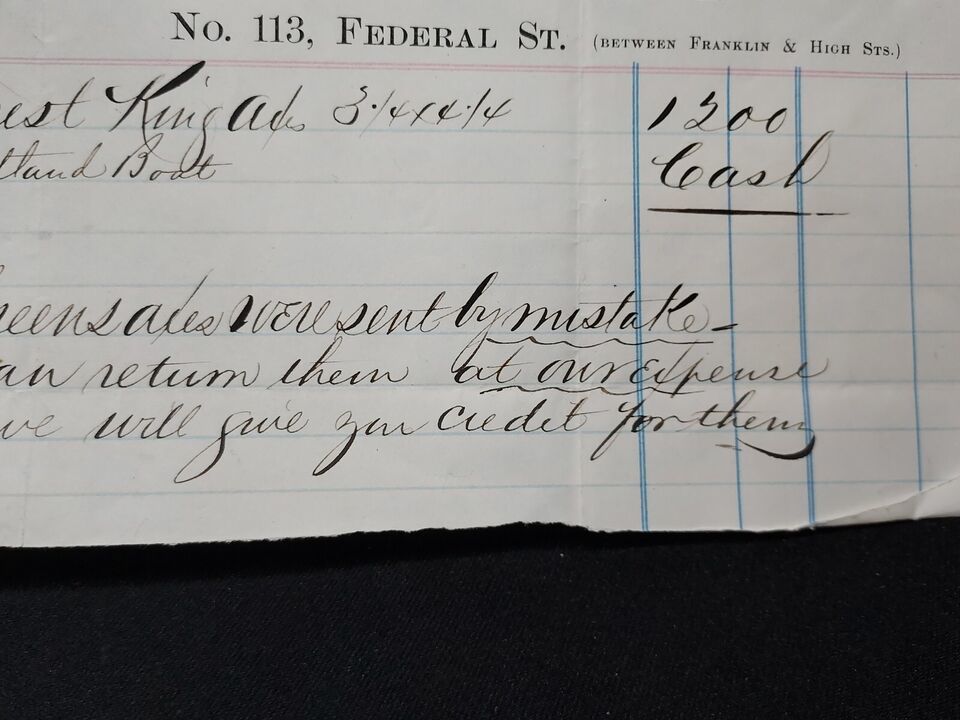 No. 113, Federal St. (between Franklin & High Sts.)
est King Axs 3 1/4 x 4 1/4 1200
tland Boat Cash
eens axes were sent by mistake -
an return them at our Expense
we will give you credit for them